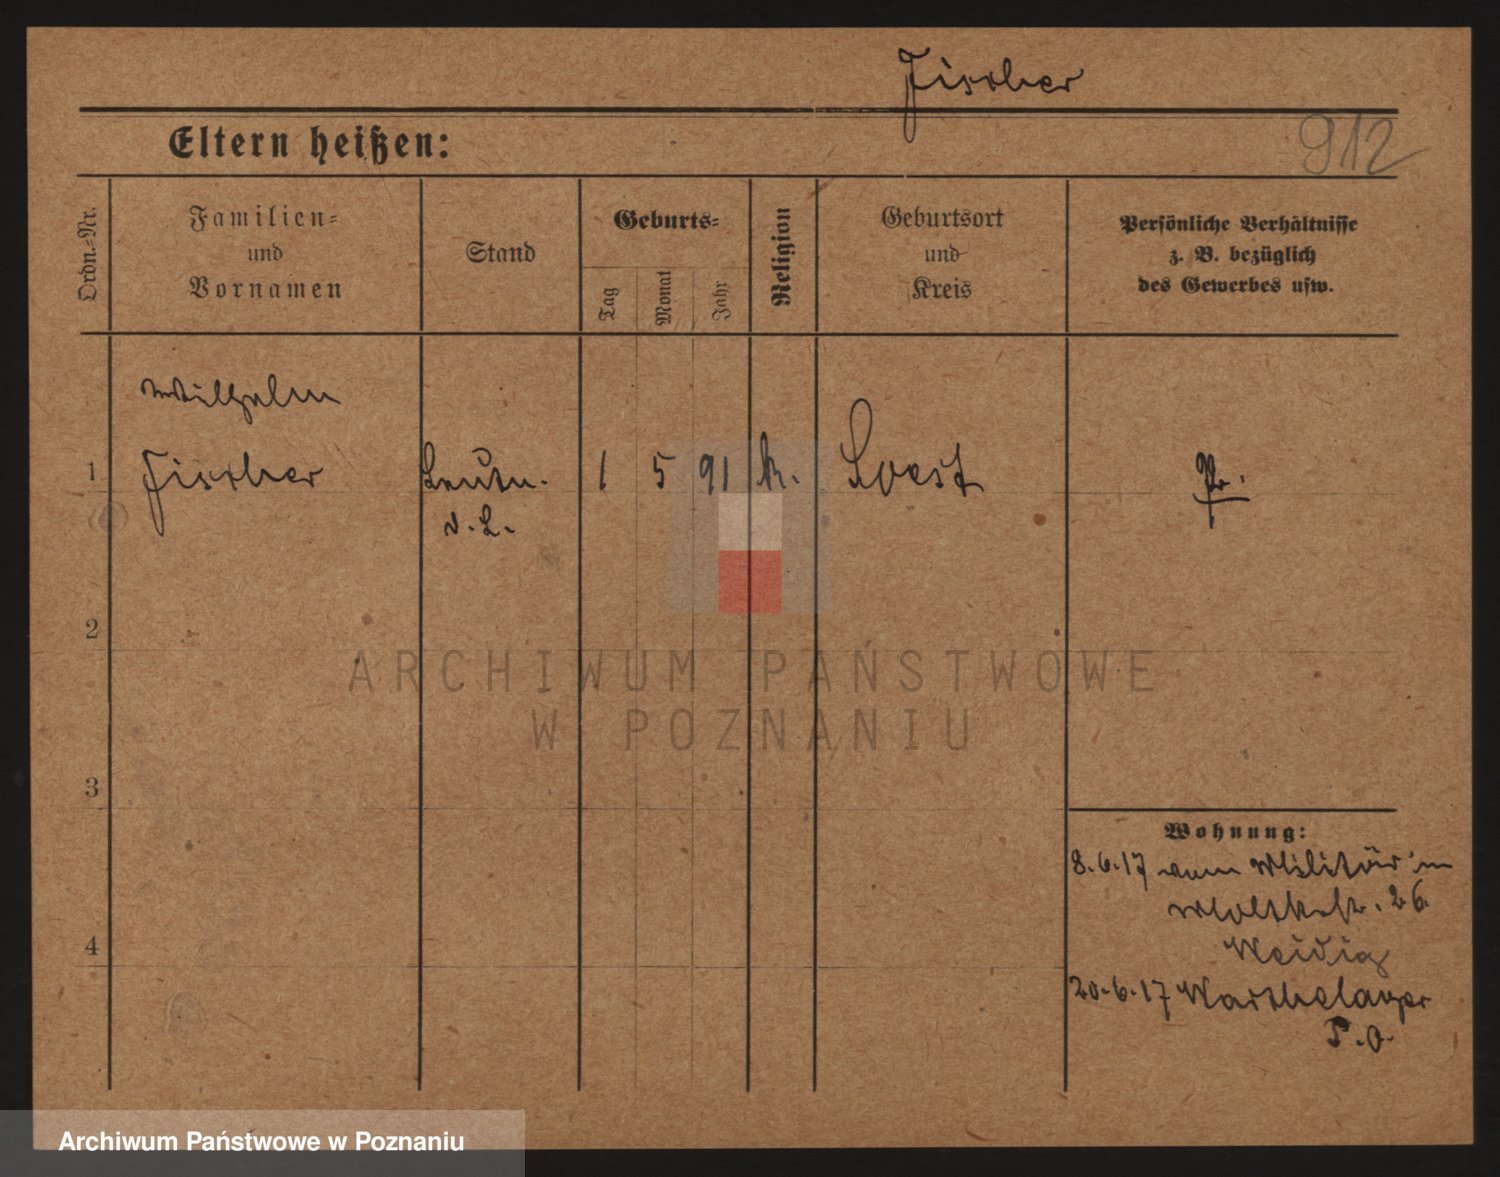 Fischer
Eltern heißen:
912
Ordn.-Nr.
Familien-
und
Vornamen
Stand
Geburts-
Tag
Monat
Jahr
Religion
Geburtsort
und
Kreis
Persönliche Verhältnisse
z. B. bezüglich
des Gewerbes usw.
Wilhelm
1 Fischer Leutn. 1 5 91 k. Soest Pr.
d. L.
2
3
4
ARCHIWUM PAŃSTWOWE
W POZNANIU
Wohnung:
8.6.17 vom Militär in
Moltkestr. 26
Weidig
20.6.17 Warthelager
P.O.
Archiwum Państwowe w Poznaniu